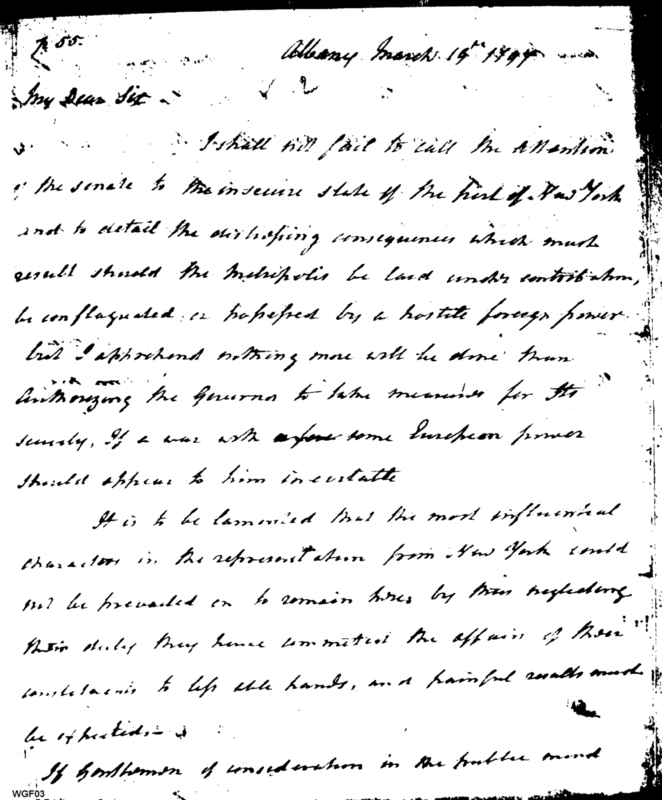 p 55.
Albany March 19th 1799
My Dear Sir
I shall not fail to call the Attention
of the senate to the insecure state of the Port of New York
and to detail the distressing consequences which must
result should the Metropolis be laid under contribution,
be conflagrated or possessed by a hostile foreign power
but I apprehend nothing more will be done than
Authorizing the Governor to take measures for Its
security, If a war with some European power
should appear to him inevitable
It is to be lamented that the most influential
characters in the representation from New York could
not be prevailed on to remain here, by their neglecting
their duty they have committed the affairs of their
constituents to less able hands, and painful results must
be expected
If Gentlemen of consideration in the public mind
WGF03